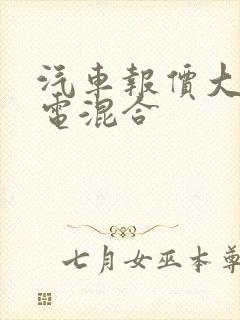 汽車報價大
電混合
七月女巫本尊